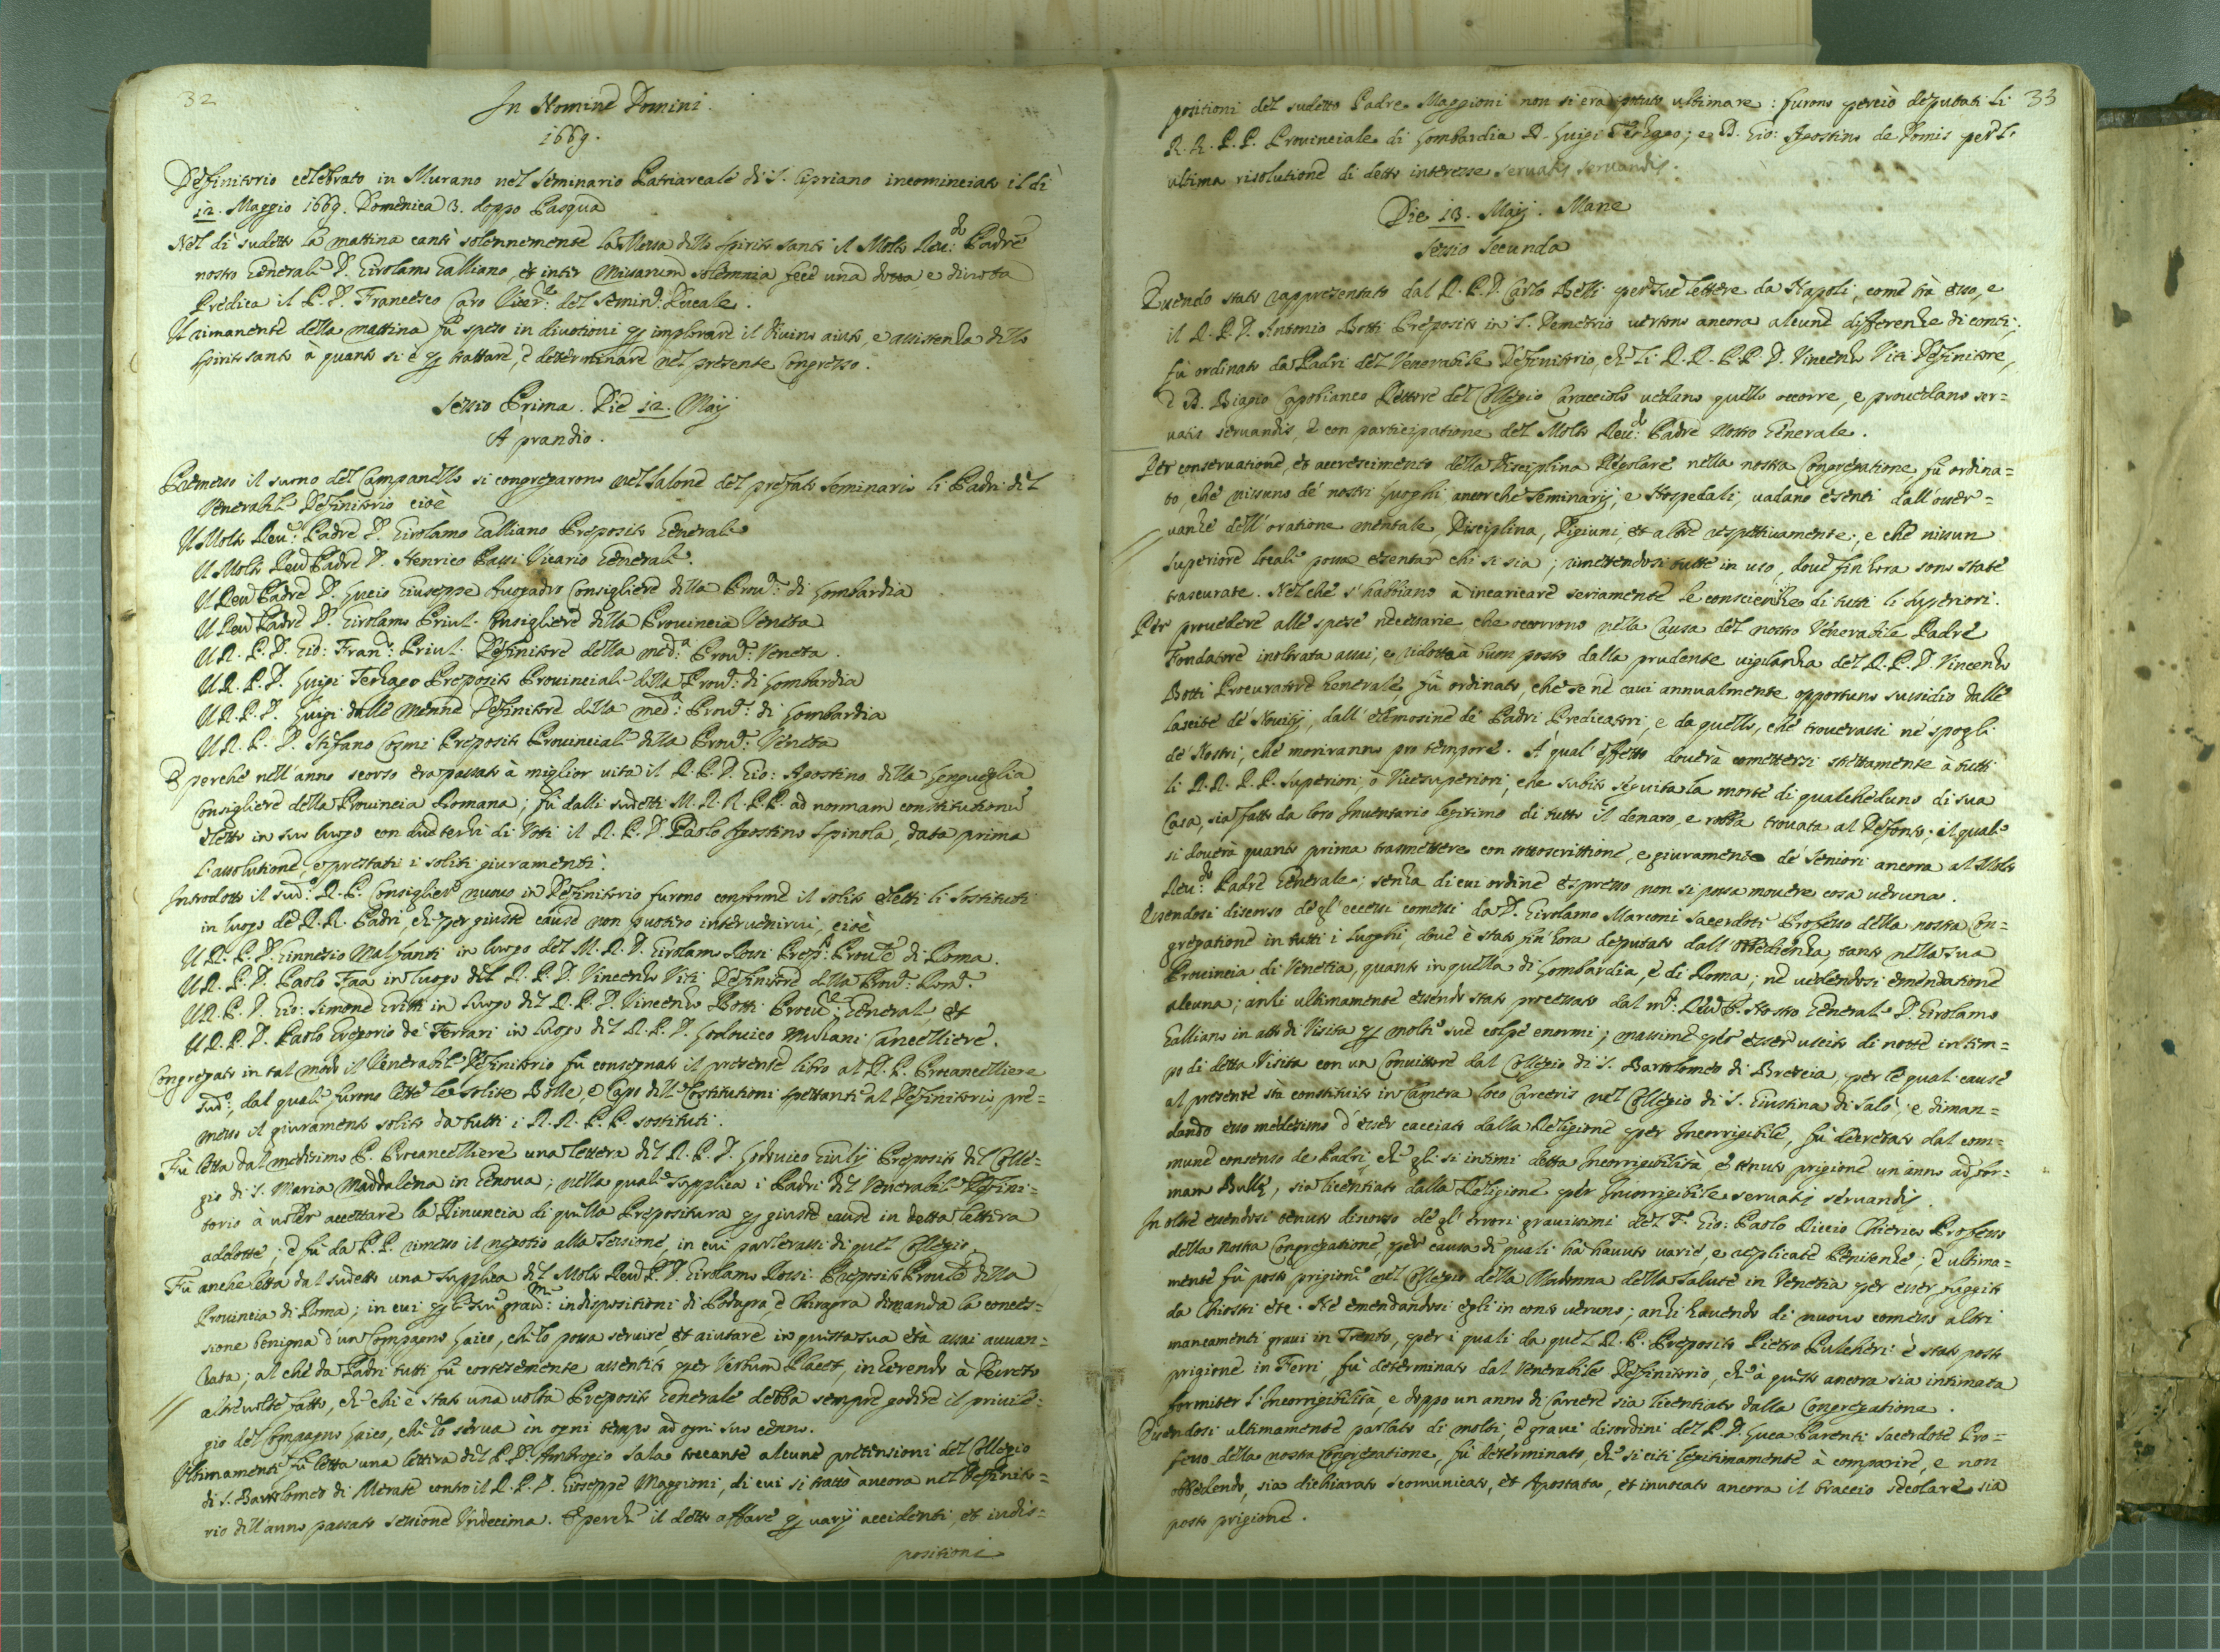 32
In Nomine Domini.
1669.
Deffinitorio celebrato in Murano nel Seminario Patriarcale di S. Cipriano incominciato il dì
12. Maggio 1669. Domenica 3. doppo Pasqua
Nel dì sudetto la mattina cantò solennemente la Messa dello Spirito Santo il Molto Reu:do Padre
nostro Generale D. Girolamo Galliano, et inter Missarum solemnia fece una dotta, e diuota
Predica il P. D. Francesco Caro del Semin:o Ducale.
Il rimanente della mattina fù speso in diuotioni per implorare il Diuino aiuto, e assistenza dello
Spirito Santo à quanto si è per trattare, e determinare nel presente Congresso.
Sessio Prima. Die 12. Maij
A prandio.
Premesso il suono del Campanello si congregarono nel Salone del prefato Seminario li Padri del
Venerabile Definitorio cioè
Il Molto Reu:do Padre D. Girolamo Galliano Preposito Generale
Il Molto Reu:do Padre D. Henrico Bassi Vicario Generale.
Il Reu:do Padre D. Lucio Giuseppe Auogadro Consigliere della Prou:a di Lombardia
Il Reu:do Padre D. Girolamo Priuli Consigliere della Prouincia Veneta
Il R. P. D. Gio: Fran:co Priuli Definitore della med:a Prou:a Veneta.
Il R. P. D. Luigi Terzago Preposito Prouinciale della Prou:a di Lombardia
Il R. P. D. Luigi dalle Menne Definitore della med:a Prou:a di Lombardia
Il R. P. D. Stefano Cosmi Preposito Prouinciale della Prou:a Veneta
E perche nell'anno scorso era passato à miglior vita il R. P. D. Gio: Agostino della Lengueglia
Consigliere della Prouincia Romana; fù dalli sudetti M. R. R. P. P. ad normam constitutionum
eletto in suo luogo con due terzi di Voti il R. P. D. Paolo Agostino Spinola, data prima
l'assolutione, e prestati i soliti giuramenti.
Introdotto il sud:o R. P. Consigliere nuouo in Definitorio furono conforme il solito eletti li Sostituti
in luogo de R. R. Padri, che per giuste cause non puotero interuenirui, cioè
Il R. P. D. Ginnesio Malfanti in luogo del M. R. D. Girolamo Rossi Prep:to Prou:le di Roma.
Il R. P. D. Paolo Faa in luogo del R. P. D. Vincenzo Viti Definitore della Prou:a Rom:a
Il R. P. D. Gio: Simone Gritti in luogo del R. P. D. Vincenzo Botti Procu:re General et
Il R. P. D. Paolo Gregorio de Ferrari in luogo del R. P. D. Lodouico Mulani Cancelliere.
Congregato in tal modo il Venerabile Definitorio fù consegnato il presente libro al R. P. Procancelliere
sud:o, dal quale furono lette le solite Bolle, e Capo delle Costitutioni spettanti al Definitorio, pre=
messo il giuramento solito da tutti i R. R. P. P. sostituti.
Fù letta dal medesimo P. Procancelliere una lettera del R. P. D. Lodouico Giulij Preposito del Colle=
gio di S. Maria Maddalena in Genoua; nella quale supplica i Padri del Venerabile Defini=
torio à uoler accettare la Rinuncia di quella Prepositura per giuste cause in detta lettera
addotte; e fù da P. P. rimesso il negotio alla Sessione, in cui parlerassi di quel Collegio.
Fù anche letta dal sudetto una Supplica del Molto Reu:do P. D. Girolamo Rossi Preposito Prou:le della
Prouincia di Roma; in cui per le sue grau:me indispositioni di Podagra e Chiragra dimanda la conces=
sione benigna d'un Compagno Laico, che lo possa seruire, et aiutare in questa sua età assai auuan=
zata; al che da Padri tutti fù cortesemente assentito per Verbum Placet, inherendo à Decreto
altreuolte fatto, che chi è stato una uolta Preposito Generale debba sempre godere il priuile=
gio del Compagno Laico, che lo serua in ogni tempo ad ogni suo cenno.
Ultimamente fù letta una lettera del P. D. Ambrogio Sala toccante alcune pretensioni del Collegio
di S. Bartolomeo di Merate contro il R. P. D. Gioseppe Maggioni, di cui si trattò ancora nel Definito=
rio dell'anno passato sessione Undecima. E perche il detto affare per varij accidenti, et indis=
positioni
33
positioni del sudetto Padre Maggioni non si era potuto ultimare: furono perciò deputati li
R. R. P. P. Prouinciale di Lombardia D. Luigi Terzago; e D. Gio: Agostino de Domis per l'
ultima risolutione di detto interesse seruatis seruandis.
Die 13. Maij. Mane
Sessio Secunda
Essendo stato rappresentato dal R. P. D. Carlo Belli per sue lettere da Napoli, come trà esso, e
il R. P. D. Antonio Botti Preposito in S. Demetrio uertono ancora alcune differenze di conti;
fù ordinato da Padri del Venerabile Definitorio, che li R. R. P. P. D. Vincenzo Viti Definitore,
e D. Biagio Capobianco Rettore del Collegio Caracciolo uedano quello occorre, e prouedano ser=
uatis seruandis, e con participatione del Molto Reu:do Padre Nostro Generale.
Per conseruatione, et accrescimento della Disciplina Regolare nella nostra Congregatione, fù ordina=
to, che nissuno de' nostri Luoghi, ancorche Seminarij, e Hospedali, uadano esenti dall'osser=
uanze dell'oratione mentale, Disciplina, Digiuni, et altre respettiuamente; e che nissun
Superiore locale possa esentare chi si sia; rimettendosi tutte in uso, doue fin hora sono state
trascurate. Nel che s'habbiano à incaricare seriamente le conscienze di tutti li Superiori.
Per prouedere alle spese necessarie che occorrono nella Causa del nostro Venerabile Padre
Fondatore inoltrata assai, e ridotta à buon posto dalla prudente uigilanza del R. P. D. Vincenzo
Botti Procuratore Generale, fù ordinato, che se ne caui annualmente opportuno sussidio dalle
lascite de' Nouitij, dall'elemosine de' Padri Predicatori, e da quello, che trouerassi ne' spogli
de' Nostri, che moriranno pro tempore. A' qual'effetto douerà commettersi strettamente à tutti
li R. R. P. P. Superiori, ò Vicesuperiori, che subito seguita la morte di qualcheduno di sua
Casa, sia fatto da loro Inuentario legitimo di tutto il denaro, e robba trouata al Defonto; il quale
si douerà quanto prima trasmettere con sottoscrittione, e giuramento de' Seniori ancora al Molto
Reu:do Padre Generale; senza di cui ordine espresso non si possa mouere cosa ueruna.
Essendosi discorso de gl'eccessi comessi da D. Girolamo Marconi Sacerdote Professo della nostra Con=
gregatione in tutti i Luoghi, doue è stato fin'hora deputato dall'obbedienza, tanto nella sua
Prouincia di Venetia, quanto in quella di Lombardia, e di Roma; ne uedendosi emendatione
alcuna; anzi ultimamente essendo stato processato dal M:o Reu:do P. Nostro Generale D. Girolamo
Galliano in atto di Visita per molte sue colpe enormi; massime per esser uscito di notte in tem=
po di detta Visita con un Conuittore dal Collegio di S. Bartolomeo di Brescia, per le quali cause
al presente stà constituito in Camera loco Carceris nel Collegio di S. Giustina di Salò; e diman=
dando esso medesimo d'esser cacciato dalla Religione per Incorrigibile, fù decretato dal com=
mune consenso de Padri, che gli si intimi detta Incorrigibilità, e tenuto prigione un'anno ad for=
mam Bullę, sia licentiato dalla Religione per Incorrigibile seruatis seruandis.
In oltre essendosi tenuto discorso de gl'errori grauissimi del F. Gio: Paolo Riccio Chierico Professo
della nostra Congregatione, per causa de quali hà hauuto varie, e replicate Penitenze; e ultima=
mente fù posto prigione nel Collegio della Madonna della Salute in Venetia per esser fuggito
da Chiostri ete. Ne emendandosi egli in conto ueruno; anzi hauendo di nuouo comesso altri
mancamenti graui in Trento, per i quali da quel R. P. Preposito Pietro Pulcheri è stato posto
prigione in Ferri, fù determinato dal Venerabile Definitorio, che à questo ancora sia intimata
formiter l'Incorrigibilità, e doppo un anno di Carcere sia licentiato dalla Congregatione.
Essendosi ultimamente parlato di molti, e graui disordini del P. D. Luca Parenti Sacerdote Pro=
fesso della nostra Congregatione, fù determinato, che si citi legitimamente à comparire, e non
obbedendo, sia dichiarato scomunicato, et Apostata, et inuocato ancora il braccio secolare sia
posto prigione.